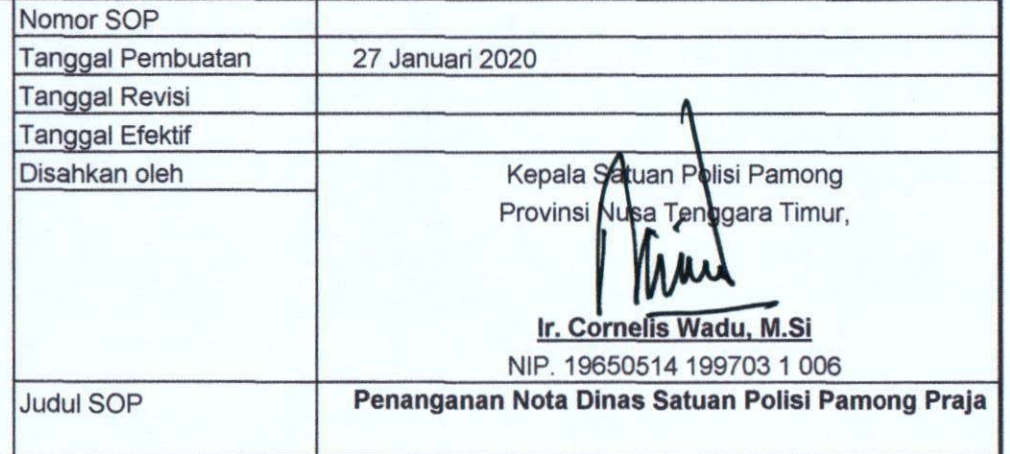 Nomor SOP
Tanggal Pembuatan 27 Januari 2020
Tanggal Revisi
Tanggal Efektif
Disahkan oleh Kepala Satuan Polisi Pamong
Provinsi Nusa Tenggara Timur,
Ir. Cornelis Wadu, M.Si
NIP. 19650514 199703 1 006
Judul SOP Penanganan Nota Dinas Satuan Polisi Pamong Praja